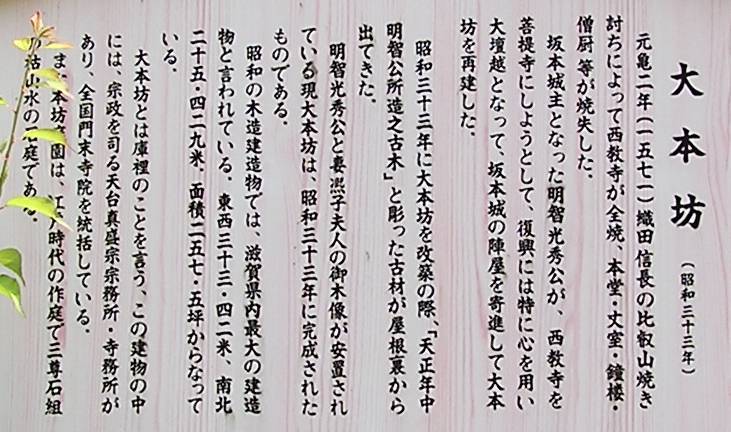 大本坊
（昭和三十三年）
元亀二年（一五七一）織田信長の比叡山焼き
討ちによって西教寺が全焼、本堂・丈室・鐘楼・
僧厨等が焼失した。
坂本城主となった明智光秀公が、西教寺を
菩提寺にしようとして、復興には特に心を用い
大壇越となって、坂本城の陣屋を寄進して大本
坊を再建した。
昭和三十三年に大本坊を改築の際、「天正年中
明智公所造之古木」と彫った古材が屋根裏から
出てきた。
明智光秀公と妻凞子夫人の御木像が安置され
ている現大本坊は、昭和三十三年に完成された
ものである。
昭和の木造建造物では、滋賀県内最大の建造
物と言われている。東西三十三・四二米、南北
二十五・四二九米、面積二五七・五坪からなって
いる。
大本坊とは庫裡のことを言う、この建物の中
には、宗政を司る天台真盛宗宗務所・寺務所が
あり、全国門末寺院を統括している。
ま 本坊 園は、江戸時代の作庭で三尊石組
の枯山水の名庭である。